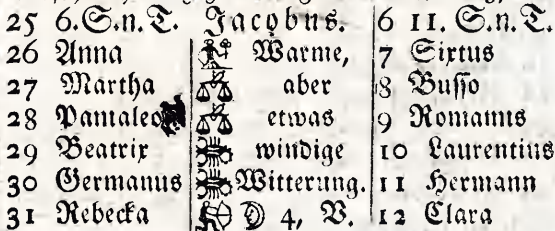 25 6.S.n.T. Jacobus. 6 11. S.n.T.
26 Anna Warme, 7 Sixtus
27 Martha aber 8 Busso
28 Pantaleo etwas 9 Romanus
29 Beatrix windige 10 Laurentius
30 Germanus Witterung. 11 Hermann
31 Rebecka ☽ 4, V. 12 Clara